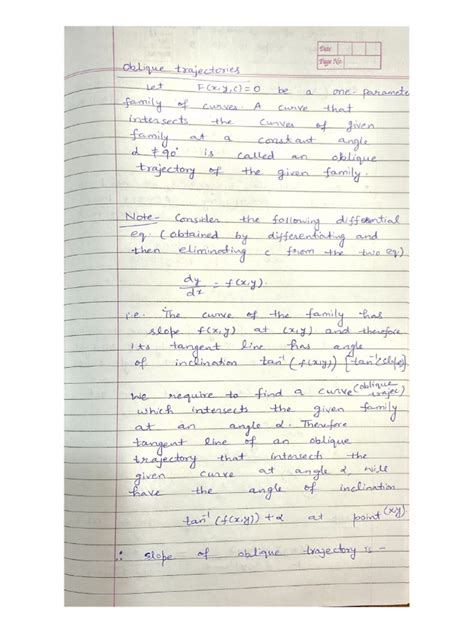 Date
Page No.
Oblique trajectories
Let F(x,y,c)=0 be a one-paramete
family of curves. A curve that
intersects the curves of given
family at a constant angle
α ≠ 90° is called an oblique
trajectory of the given family.
Note- Consider the following differential
eq. (obtained by differentiating and
then eliminating c from the two eq)
dy/dx = f(x,y).
i.e. The curve of the family has
slope f(x,y) at (x,y) and therefore
its tangent line has angle
of inclination tan⁻¹(f(x,y)) [tan⁻¹(slope)]
We require to find a curve (oblique trajec)
which intersects the given family
at an angle α. Therefore
tangent line of an oblique
trajectory that intersect the
given curve at angle α, will
have the angle of inclination
tan⁻¹(f(x,y)) + α at point (x,y)
∴ slope of oblique trajectory is -